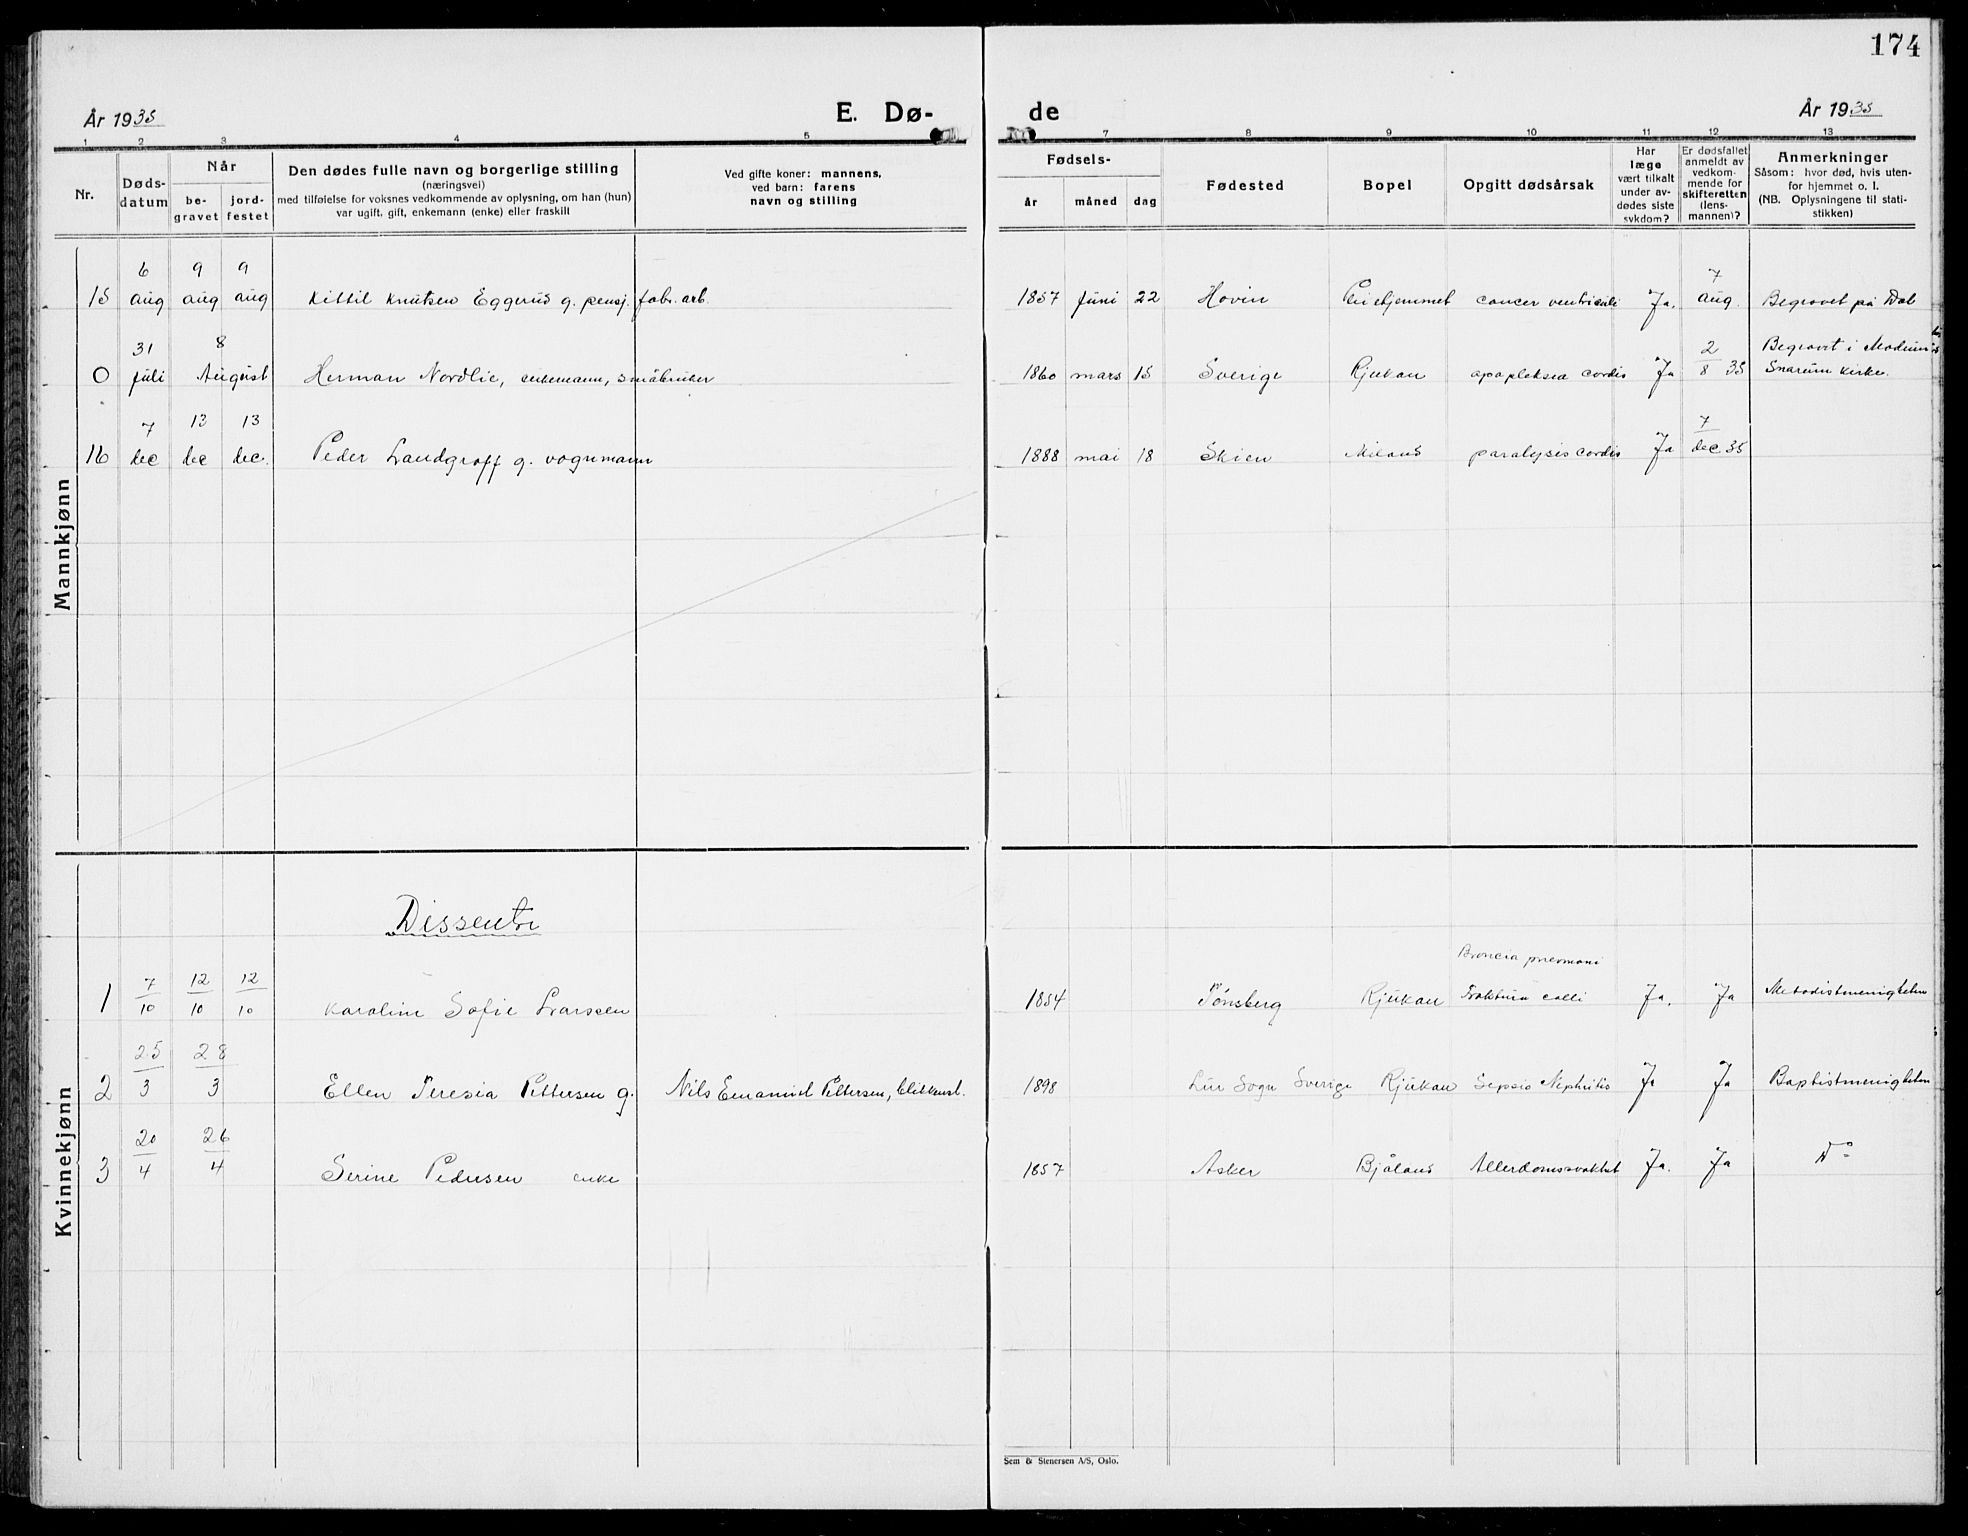 174
År 1935
E. Dø-
de
År 1935
1 2 3 4 5 7 8 9 10 11 12 13
Nr.
Døds-
datum
Når
be-
gravet
jord-
festet
Den dødes fulle navn og borgerlige stilling
(næringsvei)
med tilføielse for voksnes vedkommende av oplysning, om han (hun)
var ugift, gift, enkemann (enke) eller fraskilt
Ved gifte koner: mannens,
ved barn: farens
navn og stilling
Fødsels-
år måned dag
Fødested
Bopel
Opgitt dødsårsak
Har
læge
vært tilkalt
under av-
dødes siste
sykdom?
Er dødsfallet
anmeldt av
vedkom-
mende for
skifteretten
(lens-
mannen)?
Anmerkninger
Såsom: hvor død, hvis uten-
for hjemmet o. l.
(NB. Oplysningene til stati-
stikken)
Mannkjønn
6 9 9 7
15 aug aug aug Kittil Knutsen Eggerud g. pensj. fabr. arb. 1857 Juni 22 Hovin Pleiehjemmet cancer ventriculi Ja. aug. Begravet på Dal
31 8 2 Begravet i Modum
0 juli August Herman Nordlie, enkemann, småbruker 1860 mars 15 Sverige Rjukan apopleksia cordis Ja 8 35 Snarum kirke.
7 13 13 7
16 dec dec dec. Peder Landgraff g. vognmann 1888 mai 18 Skien Miland paralysis cordis Ja dec 35
Kvinnekjønn
Dissentre
7 12 12 Broncia pnevmoni
1 10 10 10 Karoline Sofie Larssen 1854 Tønsberg Rjukan Fraktura colli Ja. Ja Metodistmenigheten
25 28
2 3 3 Ellen Teresia Pettersen g. Nils Emanuel Pettersen, blikkensl. 1898 Lur Sogn Sverige Rjukan Sepsis Nephritis Ja Ja Baptistmenigheten
20 26
3 4 4 Serine Pedersen enke 1857 Asker Bjåland Allerdomssvakhet Ja. Ja Do
Sem & Stenersen A/S, Oslo.